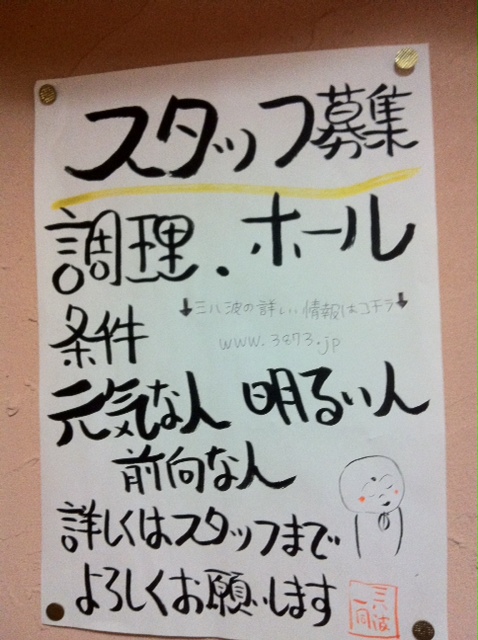 スタッフ募集
調理・ホール
↓三八波の詳しい情報はコチラ↓
www.3873.jp
条件
元気な人 明るい人
前向な人
詳しくはスタッフまで
よろしくお願いします
三八波
一同